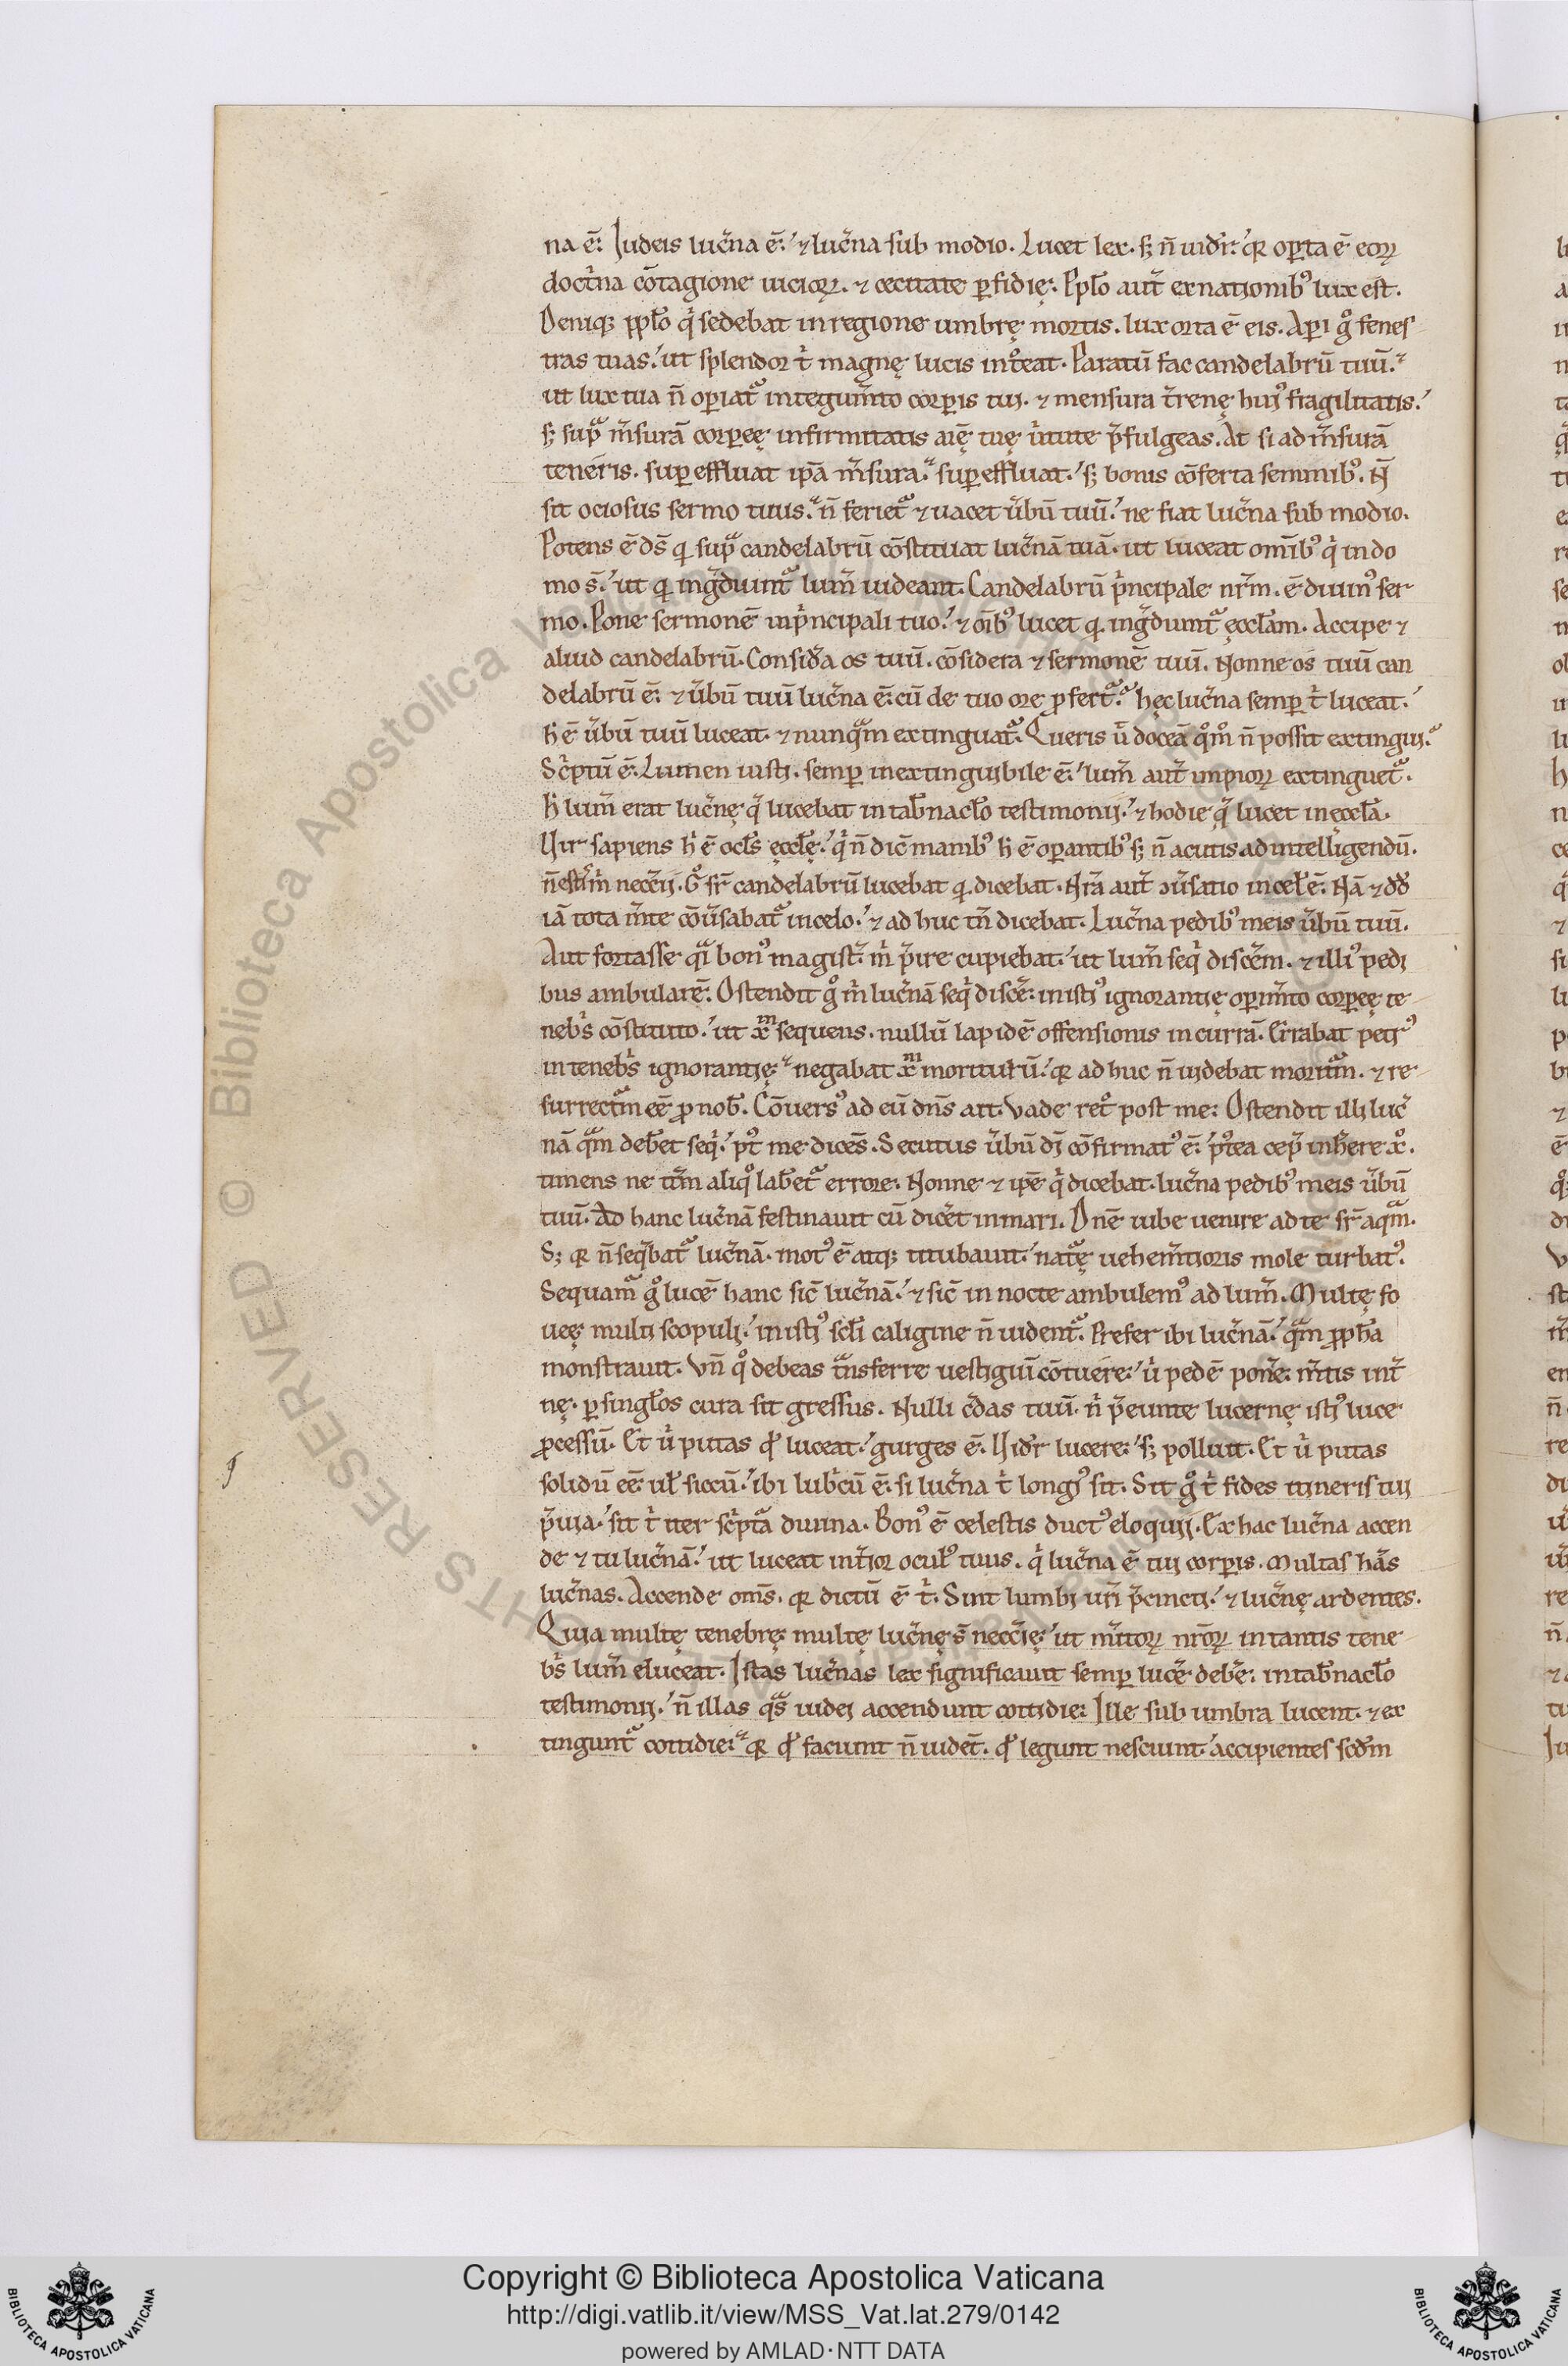 na ē. Iudeis luc̄na ē. ⁊ luc̄na sub modio. Lucet lex. sꝫ n̄ uidr̄. qꝛ oꝑta ē eoꝝ
doct̄na cōtagione uicioꝝ. ⁊ cecitate ꝑfidię. Ppl̄o aut̄ ex nationibꝰ lux est.
Deniqꝫ ppl̄o qͥ sedebat in regione umbrę mortis. lux orta ē eis. Aꝑi gͦ fenes
tras tuas. ut splendor tͥ magnę lucis int̄eat. Paratū fac candelabrū tuū.
ut lux tua n̄ oꝑiat᷑ integum̄to corꝑis tui. ⁊ mensura t̄renę huiꝰ fragilitatis.
sꝫ supᵃ m̄surā corꝑeę infirmitatis aīę tuę ūtute p̄fulgeas. At si ad m̄surā
teneris. suꝑeffluat ip̄a m̄sura. suꝑeffluat. sꝫ bonis cōferta seminibꝰ. N̄
sit ociosus sermo tuus. n̄ feriet᷑ ⁊ uacet ūbū tuū. ne fiat luc̄na sub modio.
Potens ē ds̄ qi supᵃ candelabrū cōstituat luc̄nā tuā. ut luceat om̄ibꝰ qͥ in do
mo s̄. ut qi ingᵃdiunt᷑ lum̄ uideant. Candelabrū pͥncipale nr̄m. ē diuinꝰ ser
mo. Pone sermonē in pͥncipali tuo. ⁊ oīb; lucet qi ingᵃdiunt᷑ ęccl̄am. Accipe ⁊
aliud candelabrū. Consid̄a os tuū. cōsidera ⁊ sermonē tuū. Nonne os tuū can
delabrū ē. ⁊ ūbū tuū luc̄na ē. cū de tuo ore ꝓfert᷑. hęc luc̄na semꝑ tͥ luceat.
h̄ ē ūbū tuū luceat. ⁊ nunqᵃm extinguat᷑. Queris ū doceā qͦmͦ n̄ possit extingui.
Sc̄ptū ē. Lumen iusti. semꝑ inextinguibile ē. lum̄ aut̄ impioꝝ extinguet᷑.
h̄ lum̄ erat luc̄nę q̄ lucebat in tab̄nacl̄o testimonij. ⁊ hodie q̄ lucet in ęccl̄a.
Uir sapiens hͥ ē ocl̄s ęccl̄ę. qͥ n̄ dic̄ manibꝰ h̄ ē oꝑantibꝰ sꝫ n̄ acutis ad intelligendū.
n̄ estis m̄ necc̄ij. Gͦ sr̄ candelabrū lucebat qi dicebat. Nr̄a aut̄ ↄūsatio in cel̄ ē. Nā ⁊ dd̄
iā tota m̄te cōūsabat᷑ in celo. ⁊ ad huc tn̄ dicebat. Luc̄na pedibꝰ meis ūbū tuū.
Aut fortasse qᵃi bonꝰ magist̄ m̄ p̄ire cupiebat. ut lum̄ seqͥ disc̄em. ⁊ illiꝰ pedi
bus ambularē. Ostendit gͦ m̄ luc̄nā seqͥ disc̄e. in istiꝰ ignorantię oꝑim̄to corꝑeę te
nebͥs cōstituto. ut xp̄m sequens. nullū lapidē offensionis incurrā. Errabat petrꝰ
in tenebͥs ignorantię negabat xp̄m moriturū. qꝛ ad huc n̄ uidebat moritᵃm. ⁊ re
surrectᵃm eē ꝓ nob̄. Cōuersꝰ ad eū dn̄s ait. Vade ret̄ post me. Ostendit illi luc̄
nā qᵃm deb̄et seqͥ. pꝰt me dicēs. Secutus ūbū di cōfirmatꝰ ē. pꝰtea cep̄ inh̄ere xͦ.
timens ne it̄m aliqͦ lab̄et᷑ errore. Nonne ⁊ ip̄e qͥ dicebat. luc̄na pedibꝰ meis ūbū
tuū. Ad hanc luc̄nā festinauit cū dic̄et in mari. Dn̄e iube uenire ad te sr̄ aqᵃm.
Sꝫ qꝛ n̄ seq̄bat᷑ luc̄nā. motꝰ ē atqꝫ titubauit. natᵃę uehem̄tioris mole turbatꝰ.
Sequam᷑ gͦ lucē hanc sic̄ luc̄nā. ⁊ sic̄ in nocte ambulemꝰ ad lum̄. Multę fo
ueę multi scopuli. in istiꝰ scl̄i caligine n̄ uident᷑. Prefer ibi luc̄nā. qᵃm ꝓph̄a
monstrauit. Vn̄ qͦ debeas tᵃnsferre uestigiū cōtuere. ūͥ pedē pon̄e. m̄tis int̄
nę. ꝑ singl̄os cura sit gressus. Nulli c̄das tuū. nͥ p̄eunte lucernę istiꝰ luce
ꝓcessū. Et ūͥ putas qͦ luceat. gurges ē. Uidr̄ lucere. sꝫ polluit. Et ūͥ putas
solidū eē. ul̄ siccū. ibi lubͥcū ē. si luc̄na tͥ longiꝰ sit. Sit gͦ tͥ fides itineris tui
p̄uia. sit tͥ iter sc̄ptᵃa diuina. Bonꝰ ē celestis ductꝰ eloquij. Ex hac luc̄na accen
de ⁊ tu luc̄nā. ut luceat int̄ior ocul̄ꝰ tuus. qͥ luc̄na ē tui corꝑis. Multas hās
luc̄nas. Accende om̄s. qꝛ dictū ē tͥ. Sint lumbi ur̄i p̄cincti. ⁊ luc̄nę ardentes.
Quia multę tenebrę. multę luc̄nę s̄ necc̄ię. ut m̄itoꝝ nr̄oꝝ in tantis tene
bͥs lum̄ eluceat. Istas luc̄nas lex significauit semꝑ luc̄e deb̄e. in tab̄nacl̄o
testimonij. n̄ illas qᵃs iudei accendunt cottidie. Ille sub umbra lucent. ⁊ ex
tingunt᷑ cottidie. qꝛ qͦ faciunt n̄ uidēt. qͦ legunt nesciunt. accipientes scd̄m
Copyright © Biblioteca Apostolica Vaticana
http://digi.vatlib.it/view/MSS_Vat.lat.279/0142
powered by AMLAD·NTT DATA